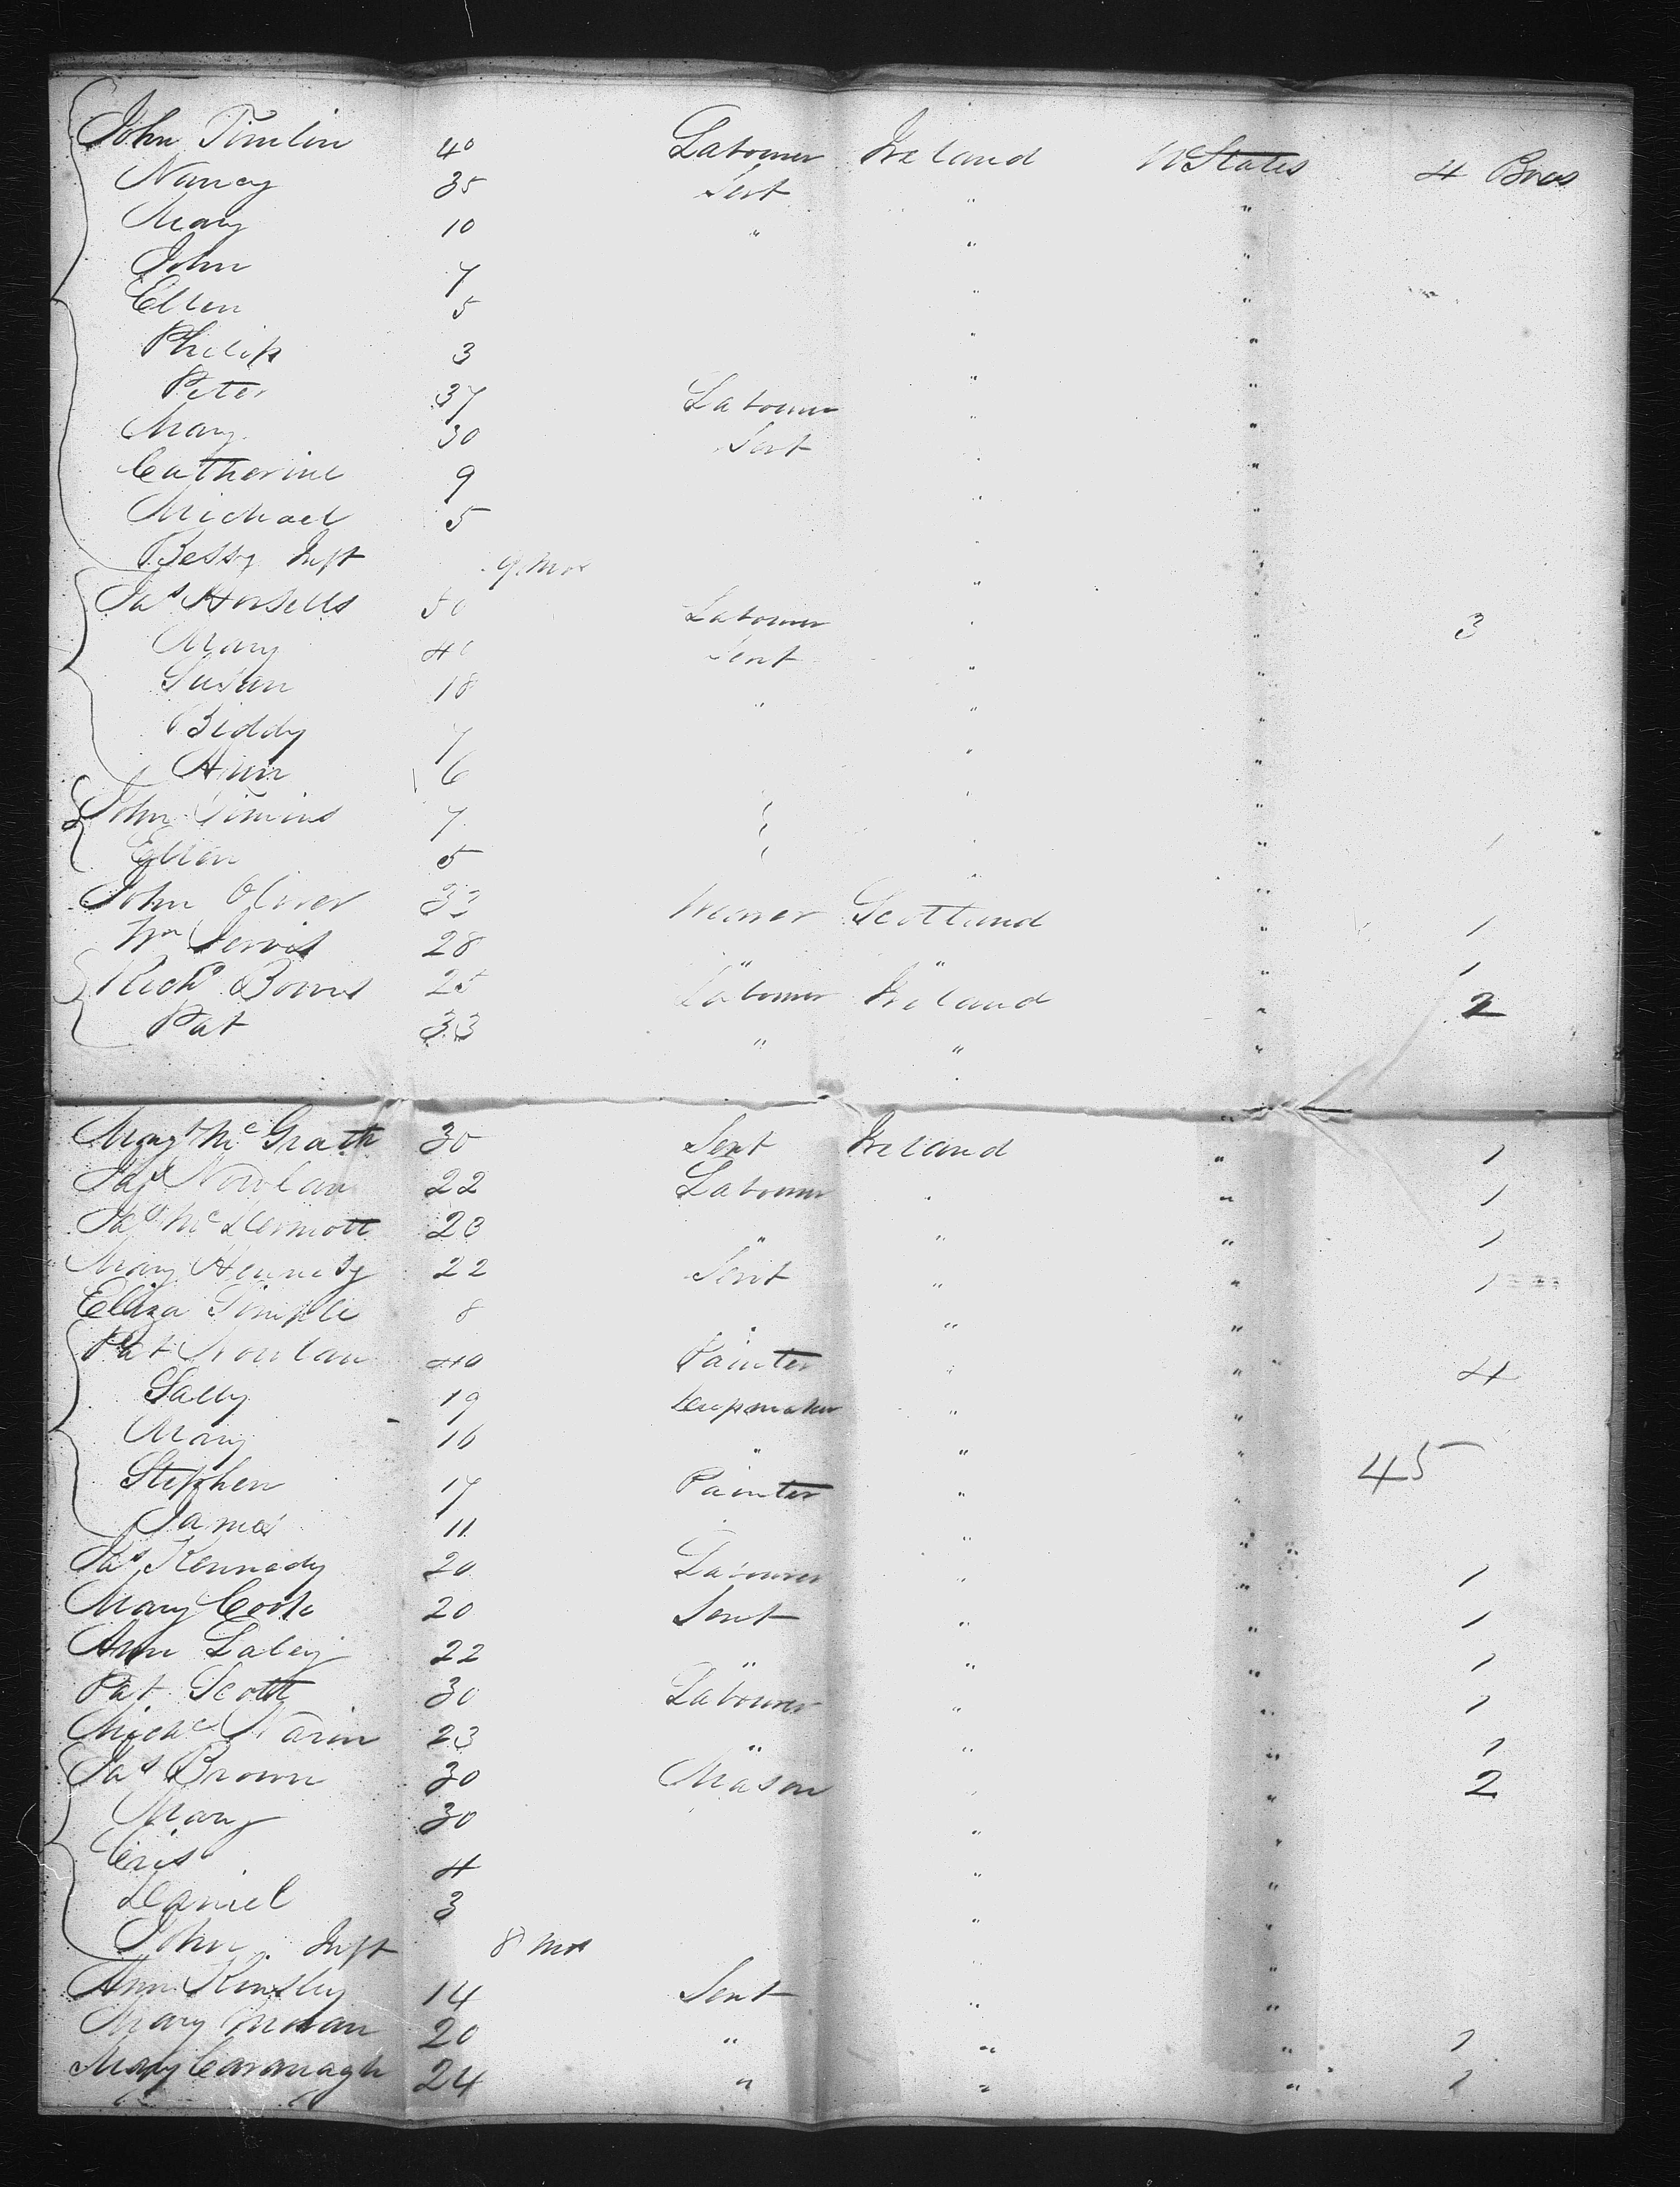 John Timlin 40 Labourer Ireland U States 4 Boxes
Nancy 35 Servt " "
Mary 10 " " "
John 7 " "
Ellen 5 " "
Philip 3 " "
Peter 37 Labourer " "
Mary 30 Servt " "
Catherine 9 " "
Michael 5 " "
Bessy Inft 9 Mos " "
Jas 50 Labourer " " 3
Mary 40 Servt " "
Susan 18 " " "
Biddy 7 " "
Ann 6 " "
John 7 " "
Ellen 5 " "
John Oliver 32 Weaver Scotland " 1
Wm 28 " " " 1
Richd 25 Labourer Ireland " 2
Pat 33 " " "
Margt McGrath 30 Servt Ireland " 1
Jas Nowlan 22 Labourer " " 1
Jas McDermott 23 " " " 1
Mary 22 Servt " " 1
Eliza 8 " "
Pat Nowlan 40 Painter " " 4
Sally 19 Capmaker " "
Mary 16 " " "
45
Stephen 17 Painter " "
James 11 " "
Jas Kennedy 20 Labourer " " 1
Mary Cook 20 Servt " " 1
Ann 22 " " " 1
Pat Scott 30 Labourer " " 1
Michl 23 " " " 1
Jas Brown 30 Mason " " 2
Mary 30 " "
Cris 4 " "
Daniel 3 " "
John Inft 8 Mos " "
Ann Kinsley 14 Servt " "
Mary 20 " " " 1
Mary Cavanagh 24 " " " 1